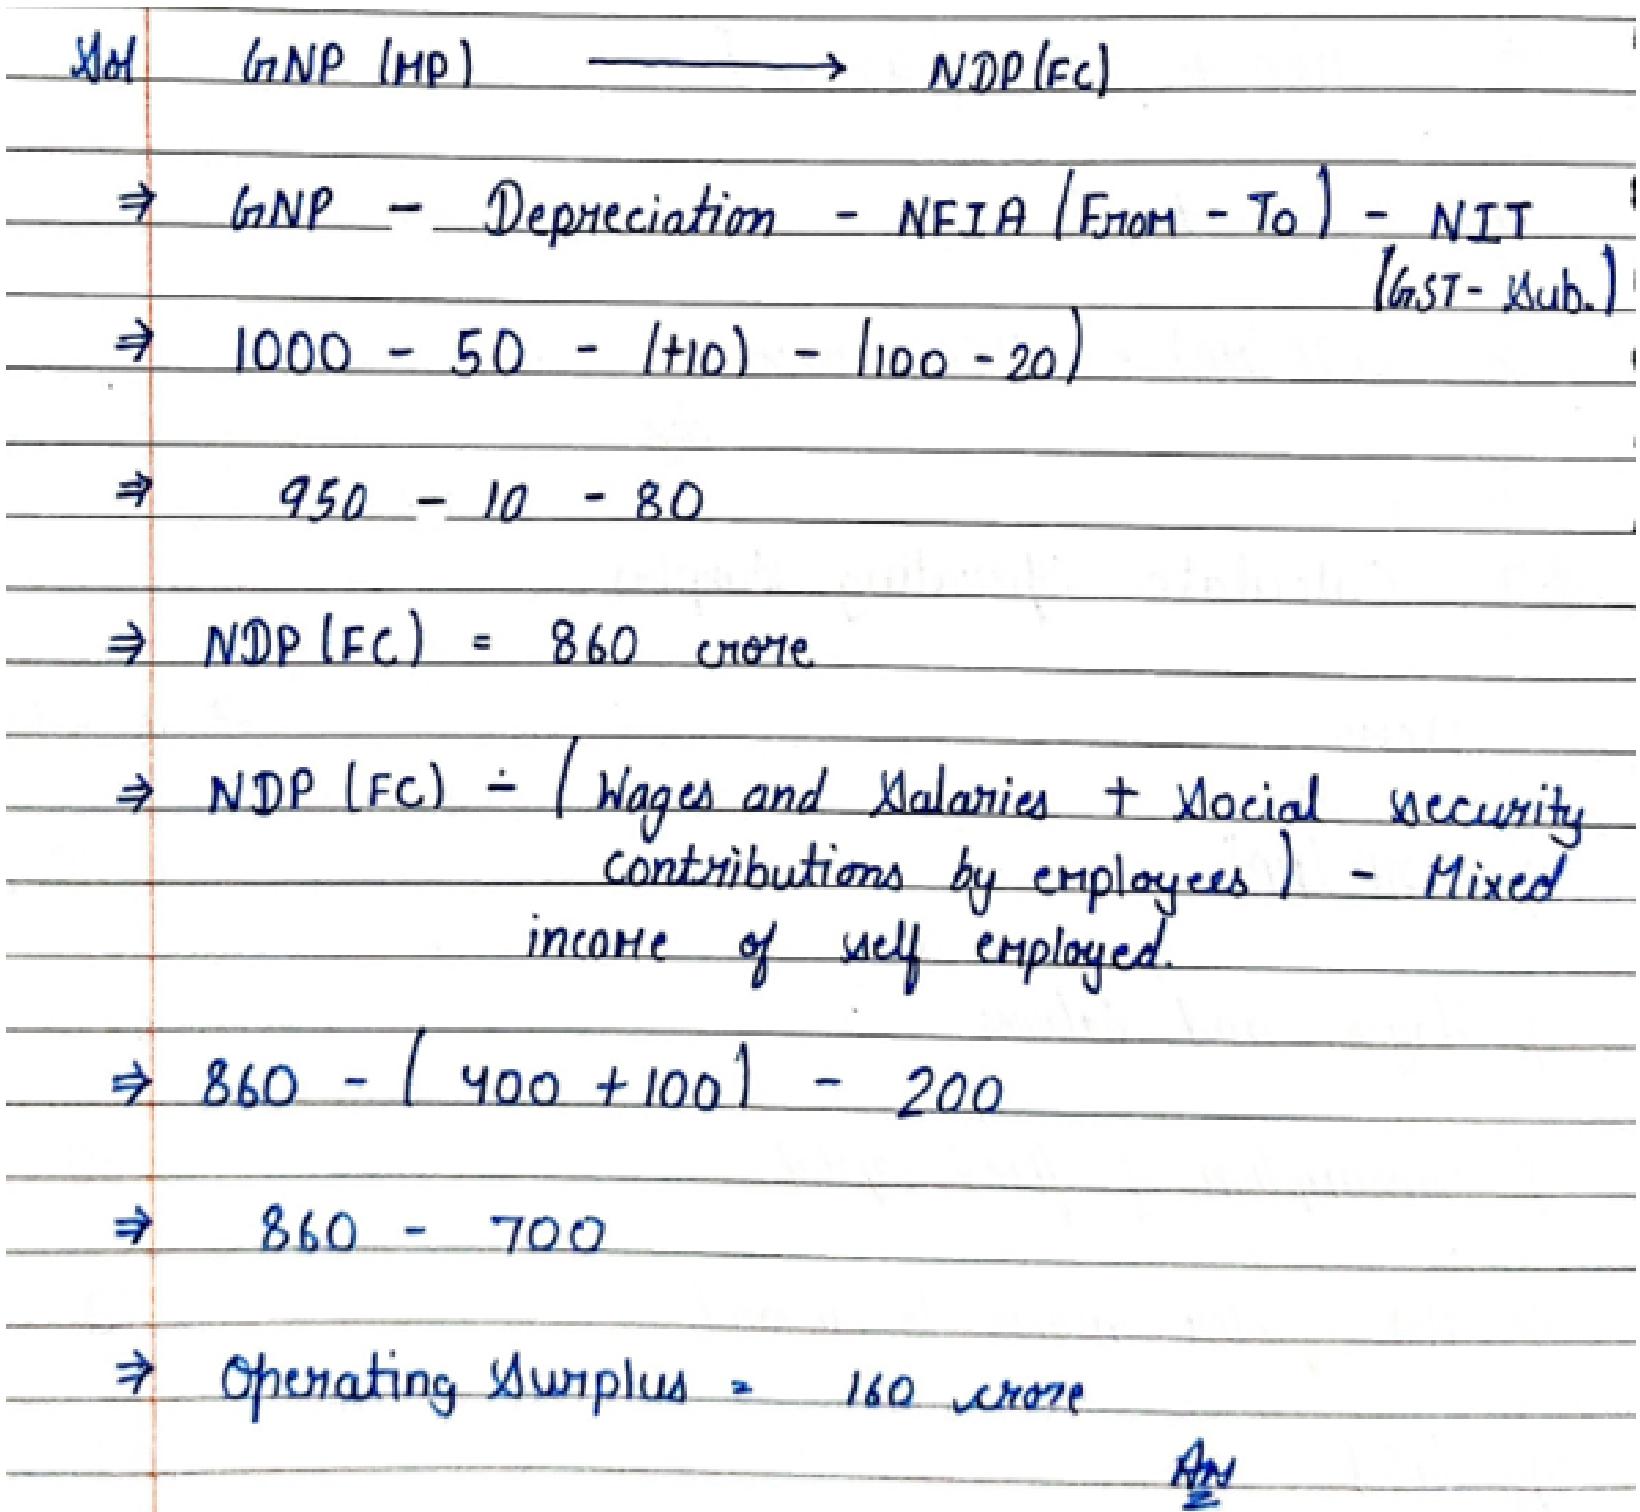 Sol GNP (MP) ⟶ NDP (FC)
⇒ GNP - Depreciation - NFIA (From - To) - NIT
(GST - Sub.)
⇒ 1000 - 50 - (+10) - (100 - 20)
⇒ 950 - 10 - 80
⇒ NDP (FC) = 860 crore
⇒ NDP (FC) - (Wages and Salaries + Social security
contributions by employees) - Mixed
income of self employed.
⇒ 860 - (400 + 100) - 200
⇒ 860 - 700
⇒ Operating Surplus = 160 crore
Ans